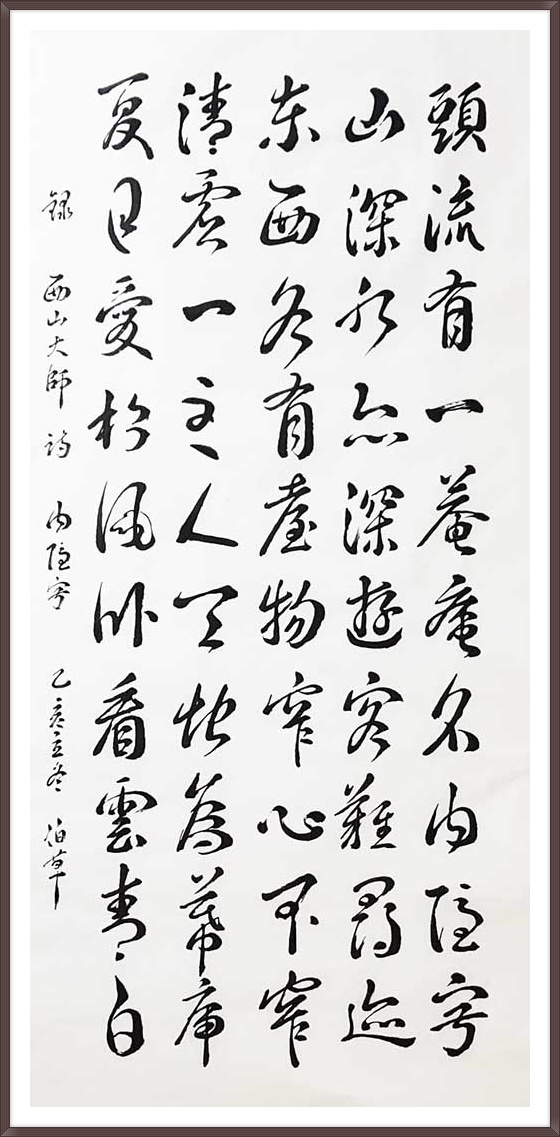 頭流有一菴庵名內隱寂
山深水亦深遊客難尋迹
東西各有臺物窄心不窄
清虛一主人天地為幕席
夏日愛松風臥看雲青白
錄 西山大師 詩 內隱寂 己亥立冬 伯草